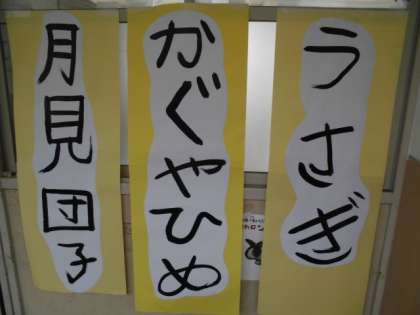 うさぎ
かぐやひめ
月見団子